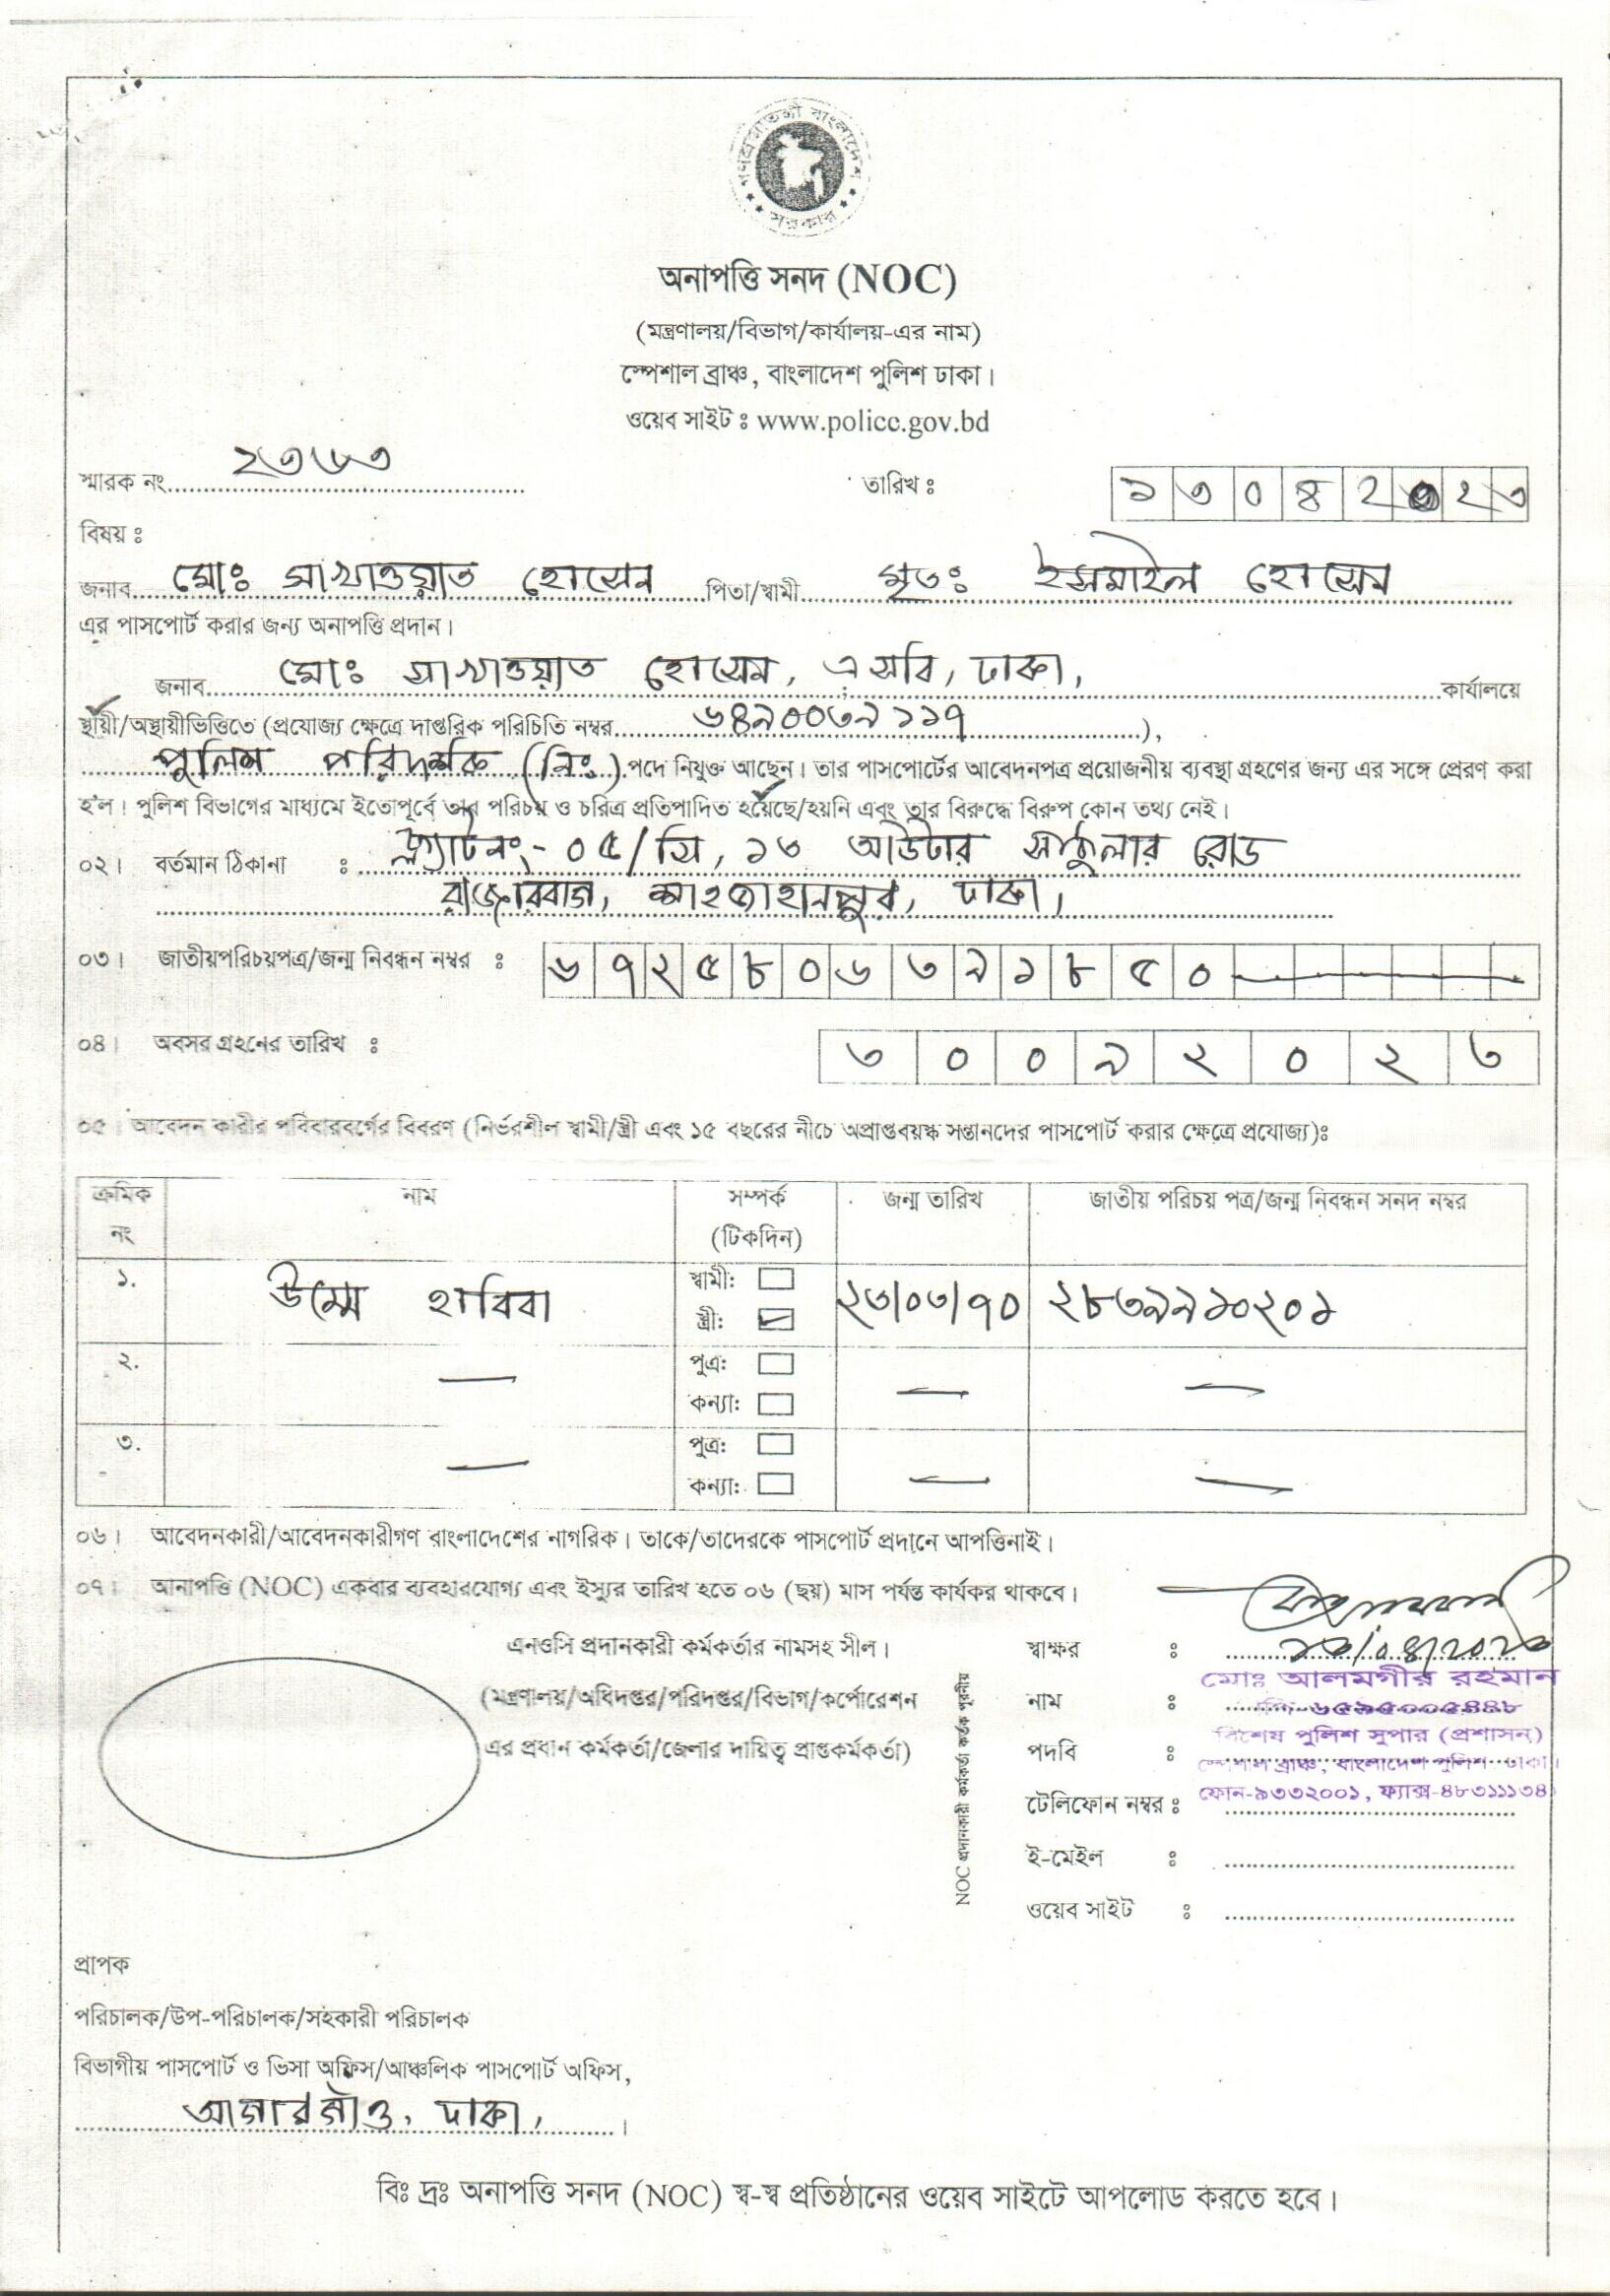 গণপ্রজাতন্ত্রী বাংলাদেশ
সরকার
অনাপত্তি সনদ (NOC)
(মন্ত্রণালয়/বিভাগ/কার্যালয়-এর নাম)
স্পেশাল ব্রাঞ্চ, বাংলাদেশ পুলিশ ঢাকা।
ওয়েব সাইট ঃ www.police.gov.bd
স্মারক নং ২৩৬৩ তারিখ ঃ ১৩০৪২০২৩
বিষয় ঃ
জনাব মোঃ সাখাওয়াত হোসেন পিতা/স্বামী মৃতঃ ইসমাইল হোসেন
এর পাসপোর্ট করার জন্য অনাপত্তি প্রদান।
জনাব মোঃ সাখাওয়াত হোসেন, এসবি, ঢাকা, কার্যালয়ে
স্থায়ী/অস্থায়ীভিত্তিতে (প্রযোজ্য ক্ষেত্রে দাপ্তরিক পরিচিতি নম্বর ৬৪৯০০৩৯১১৭),
পুলিশ পরিদর্শক (নিঃ) পদে নিযুক্ত আছেন। তার পাসপোর্টের আবেদনপত্র প্রয়োজনীয় ব্যবস্থা গ্রহণের জন্য এর সঙ্গে প্রেরণ করা
হ'ল। পুলিশ বিভাগের মাধ্যমে ইতোপূর্বে তার পরিচয় ও চরিত্র প্রতিপাদিত হয়েছে/হয়নি এবং তার বিরুদ্ধে বিরুপ কোন তথ্য নেই।
০২। বর্তমান ঠিকানা ঃ ফ্ল্যাট নং- ০৫/সি, ১৩ আউটার সার্কুলার রোড
রাজারবাগ, শাহজাহানপুর, ঢাকা।
০৩। জাতীয়পরিচয়পত্র/জন্ম নিবন্ধন নম্বর ঃ ৬৭২৫৮০৬৩৯১৮৫০
০৪। অবসর গ্রহনের তারিখ ঃ ৩০০৯২০২৩
০৫। আবেদন কারীর পরিবারবর্গের বিবরণ (নির্ভরশীল স্বামী/স্ত্রী এবং ১৫ বছরের নীচে অপ্রাপ্তবয়স্ক সন্তানদের পাসপোর্ট করার ক্ষেত্রে প্রযোজ্য)ঃ
ক্রমিক নং নাম সম্পর্ক (টিকদিন) জন্ম তারিখ জাতীয় পরিচয় পত্র/জন্ম নিবন্ধন সনদ নম্বর
১. উম্মে হাবিবা স্বামী: স্ত্রী: ২৩/০৩/৭০ ২৮৩৯৯১০২০১
২. — পুত্র: কন্যা: — —
৩. — পুত্র: কন্যা: — —
০৬। আবেদনকারী/আবেদনকারীগণ বাংলাদেশের নাগরিক। তাকে/তাদেরকে পাসপোর্ট প্রদানে আপত্তিনাই।
০৭। আনাপত্তি (NOC) একবার ব্যবহারযোগ্য এবং ইস্যুর তারিখ হতে ০৬ (ছয়) মাস পর্যন্ত কার্যকর থাকবে।
এনওসি প্রদানকারী কর্মকর্তার নামসহ সীল।
(মন্ত্রণালয়/অধিদপ্তর/পরিদপ্তর/বিভাগ/কর্পোরেশন
এর প্রধান কর্মকর্তা/জেলার দায়িত্ব প্রাপ্তকর্মকর্তা)
NOC প্রদানকারী কর্মকর্তা কর্তৃক পূরনীয়
স্বাক্ষর ঃ ১৩/০৪/২০২৩
নাম ঃ মোঃ আলমগীর রহমান
বিপি-৬৫৯৫০০৫৪৪৮
পদবি ঃ বিশেষ পুলিশ সুপার (প্রশাসন)
স্পেশাল ব্রাঞ্চ, বাংলাদেশ পুলিশ ঢাকা।
টেলিফোন নম্বর ঃ ফোন-৯৩৩২০০১, ফ্যাক্স-৪৮৩১১১৩৪
ই-মেইল ঃ
ওয়েব সাইট ঃ
প্রাপক
পরিচালক/উপ-পরিচালক/সহকারী পরিচালক
বিভাগীয় পাসপোর্ট ও ভিসা অফিস/আঞ্চলিক পাসপোর্ট অফিস,
আগারগাঁও, ঢাকা,।
বিঃ দ্রঃ অনাপত্তি সনদ (NOC) স্ব-স্ব প্রতিষ্ঠানের ওয়েব সাইটে আপলোড করতে হবে।